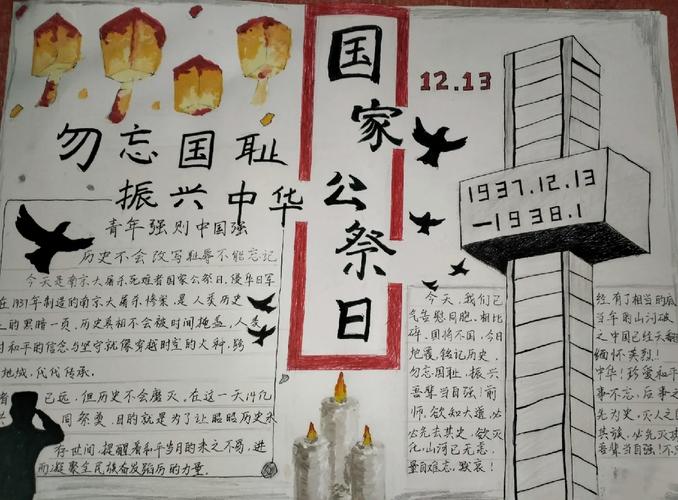 国家公祭日
12.13
勿忘国耻
振兴中华
青年强则中国强
历史不会改写耻辱不能忘记
今天是南京大屠杀死难者国家公祭日,侵华日军
在1937年制造的南京大屠杀惨案,是人类历史
上的黑暗一页,历史真相不会被时间掩盖,人类
对和平的信念与坚守就像穿越时空的火种,跨
地域,代代传承。
已远,但历史不会磨灭,在这一天
周祭奠,目的就是为了让昭昭历史永
存世间,提醒着和平当日的来之不易,进
而凝聚全民族奋发蹈厉的力量。
1937.12.13
-1938.1
今天,我们已
气告慰同胞,相比
碎,国将不国,今日
地覆,铭记历史,
勿忘国耻,振兴
吾辈当自强!前
师,欲知大道,必
必先去其史,欲灭
化,山河已无恙,
量自难忘,默哀!
经,有了相当的底
当年的山河破
之中国已经天翻
缅怀英烈!
中华!珍爱和平
事不忘,后事之
先为史,灭人之国
其族,必先灭其
吾辈当自强!不